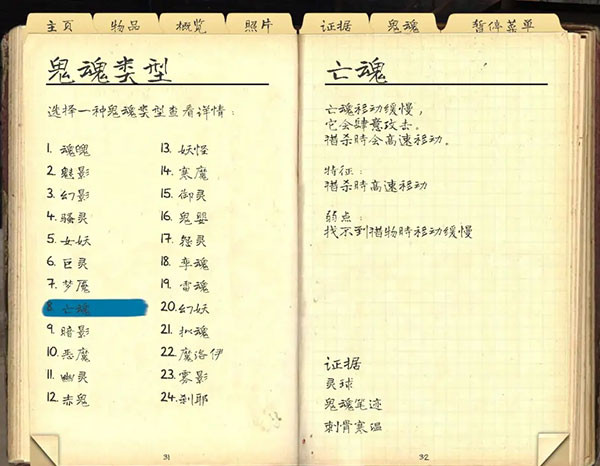 主页 物品 概览 照片 证据 鬼魂 暂停菜单
鬼魂类型
选择一种鬼魂类型查看详情：
1. 魂魄
2. 魅影
3. 幻影
4. 骚灵
5. 女妖
6. 巨灵
7. 梦魇
8. 亡魂
9. 暗影
10. 恶魔
11. 幽灵
12. 赤鬼
13. 妖怪
14. 寒魔
15. 御灵
16. 鬼婴
17. 怨灵
18. 孪魂
19. 雷魂
20. 幻妖
21. 拟魂
22. 魔洛伊
23. 雾影
24. 刹耶
31
亡魂
亡魂移动缓慢，
它会肆意攻击。
猎杀時会高速移动。
特征：
猎杀時高速移动
弱点：
找不到猎物時移动缓慢
证据
灵球
鬼魂笔迹
刺骨寒温
32